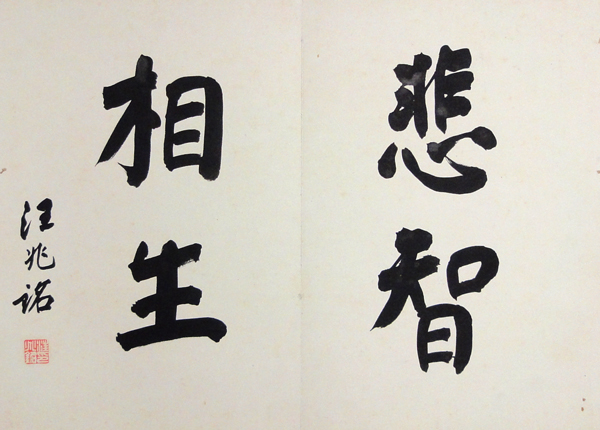 悲智
相生
汪兆銘